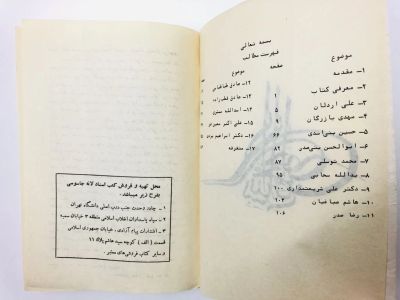 بسمه تعالی
فهرست مطالب
موضوع صفحه
۱- مقدمه
۲- معرفی کتاب ۱
۳- علی اردلان ۵
۴- مهدی بازرگان ۹
۵- حسین بنی‌اسدی ۶۶
۶- ابوالحسن بنی‌صدر ۸۲
۷- محمد توسلی ۸۷
۸- یدالله سحابی ۹۵
۹- دکتر علی شریعتمداری ۱۰۰
۱۰- هاشم صباغیان ۱۰۳
۱۱- رضا صدر ۱۰۶
موضوع
۱۲- صادق طباطبائی
۱۳- صادق قطب‌زاده
۱۴- اسدالله مبشری
۱۵- علی اکبر معین‌فر
۱۶- دکتر ابراهیم یزدی
۱۷- متفرقه
محل تهیه و فروش کتب اسناد لانه جاسوسی
بشرح زیر میباشد.
۱- چادر وحدت جنب درب اصلی دانشگاه تهران
۲- سپاه پاسداران انقلاب اسلامی منطقه ۳ خیابان سمیه
۳- انتشارات پیام آزادی، خیابان جمهوری اسلامی
قسمت (الف) کوچه سید هاشم پلاک ۱۱
و سایر کتاب فروشی‌های معتبر.